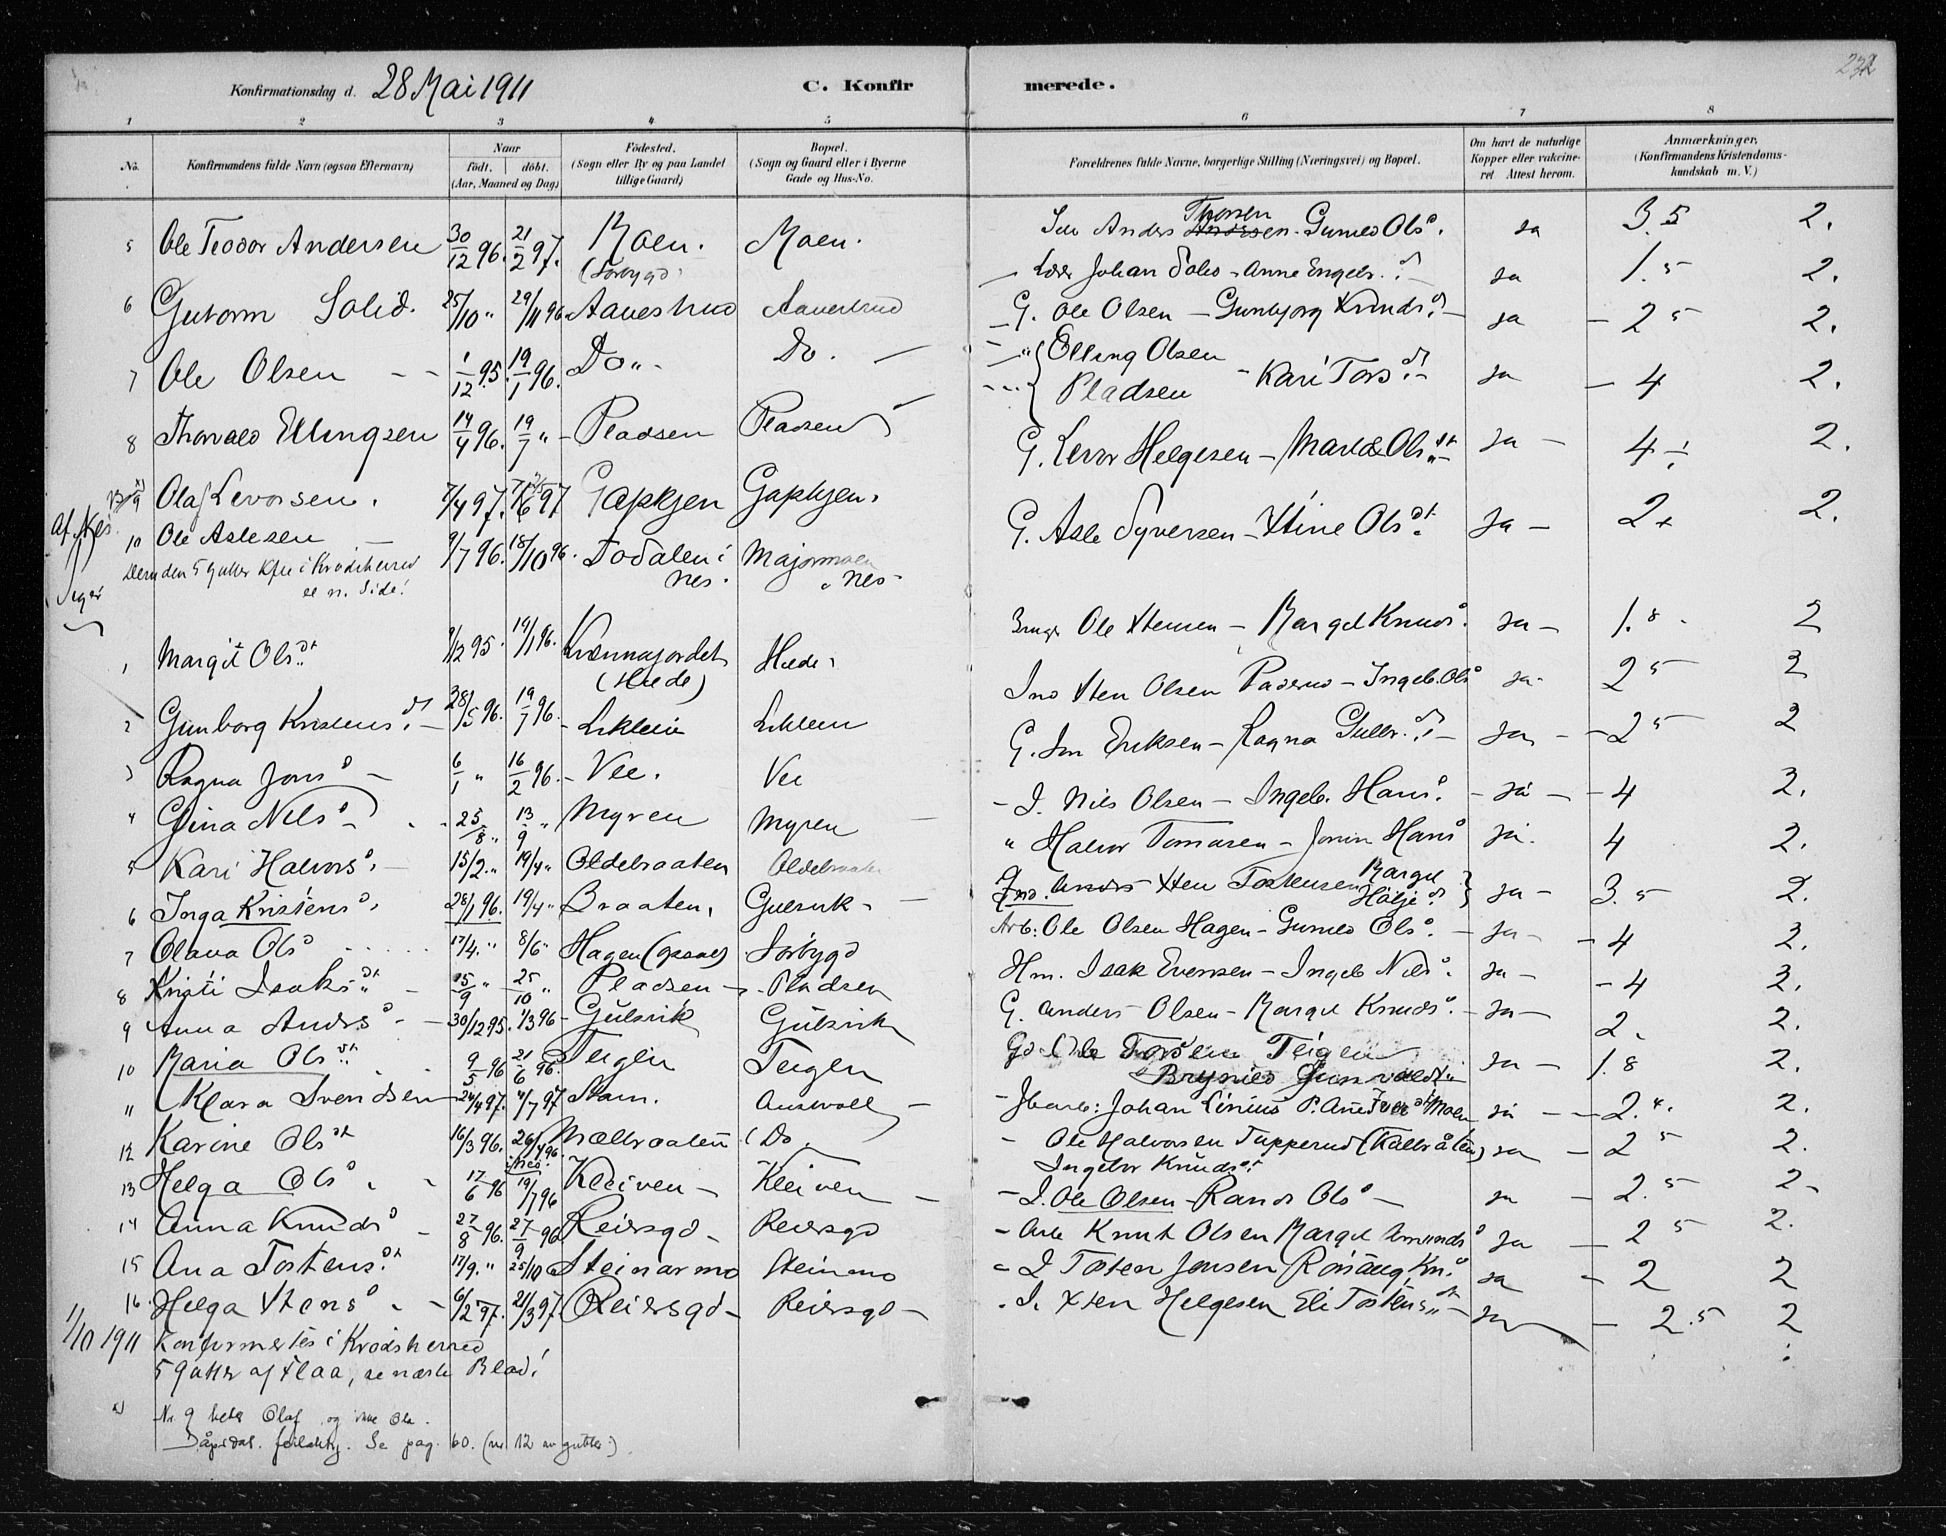 232
Konfirmationsdag d. 28 Mai 1911 C. Konfirmerede.
1 2 3 4 5 6 7 8
No. Konfirmandens fulde Navn (ogsaa Efternavn) Naar födt. döbt. (Aar, Maaned og Dag) Födested. (Sogn eller By og paa Landet tillige Gaard) Bopæl. (Sogn og Gaard eller i Byerne Gade og Hus-No. Forældrenes fulde Navne, borgerlige Stilling (Næringsvei) og Bopæl. Om havt de naturlige Kopper eller vakcineret Attest herom. Anmærkninger, (Konfirmandens Kristendomskundskab m. V.)
5 Ole Teodor Andersen 30/12 96. 21/2 97. Moen. Moen. Anders Thorsen Gunild Olsd. ja 3.5 2.
(Sørbygd)
6 Gutorm Solid. 25/10 " 29/11 96 Aavestrud Aavestrud Johan Solid - Anne Engebr. d. ja 1.5 2.
7 Ole Olsen - - 1/12 95. 19/1 96. Do " - Do. - G. Ole Olsen - Gunbjorg Knudsd. - ja - 2 5 2.
8 Thorvald Ellingsen 14/4 96. 19/7 " - Pladsen Pladsen Elling Olsen Pladsen - Kari Torsd. - ja - 4 2.
9 Olaf Levorsen. 7/4 97. 7/6 97 Gapkjen Gapkjen. G. Levor Helgesen - Marit Olsdt. ja - 4 2.
10 Ole Aslesen - 9/7 96. 18/10 96. Todalen i Nes. Majormoen Nes - G. Asle Syversen - Stine Olsdt. ja - 2+ 2.
af Nes
Desuden 5 Gutter Kfte i Krødsherred
se n. Side!
Piger
1 Margit Olsdt. 9/12 95. 19/1 96. Kvennajordet (Hilde) Hilde. Ole Stensen - Margit Knudsd. ja - 1.8 2
2 Gunborg Kristensd. - 28/5 96. 19/7 96. - Liklein Liklein Ind Sten Olsen Paderud - Ingeb. Olsd ja - 2 5 2
3 Ragna Jonsd - 6/1 " 16/2 96. - Vee. Vee G. Jon Eriksen - Ragna Gulbr.d. - ja - - 2 5 2
4 Gina Nilsd - 25/8 " 13/9 " Myren Myren - I. Nils Olsen - Ingeb. Hansd. - ja - - 4 2.
5 Kari Halvorsd. - 15/2 " 19/4 " Oldebraaten Oldebraaten " Halvor Tomasen - Jorun Hansd ja. 4 2.
6 Inga Kristensd. 28/1 96. 19/4 " Braaten. Gulsvik - Sten Tostensen Margit Helje d. ja - 3.5 2.
7 Olava Olsd 17/4. " 8/6 " Hagen Sørbygd Arb: Ole Olsen Hagen - Gunild Olsd. - ja - - 4 2.
8 Kristi Isaksdt. - 25/9 " 25/10 " Pladsen - Pladsen Hm. Isak Evensen - Ingeb Nilsd. ja - - 4 2.
9 Anna Andrsd - 30/12 95. 1/3 96 - Gulsvik Gulsvik G. Anders Olsen - Margit Knudsd. - ja - 2. 2.
10 Maria Olsdt. 9/5 96 21/6 96. Teigen Teigen Gd Ole Torsen Teigen ja - 1.8 2.
Brynild Gunvaldt.
11 Klara Svendsen 24/4 97. 4/7 97 Skam. Auswoll - - Jbarb: Johan Linius P. Ane Iversdt Moen ja - - 2.4. 2.
12 Karine Olsdt 16/3 96. 26/4 96. Mælbraaten Do - Ole Halvorsen Tupperud (Kalbråten) ja - 2 5 2.
i Nes. Ingebor Knudsdt
13 Helga Olsd. - 17/6 96 19/7 96 Kleiven - Kleiven - - I. Ole Olsen - Randi Olsd - ja - 2.5 2.
14 Anna Knudsd - 27/8 96. 27/9 96 Reiersgd - Reiersgd - Arb Knut Olsen Margit Amundsd ja - 2 5 2.
15 Ana Tostensdt. 17/9. " 25/10 " Steinarmo Steinmo - I Tosten Jonsen Rønaug Knd. ja - 2 2
16. Helga Stensd. - 6/2 97. 21/3 97. Reiersgd - Reiersgd - I. Sten Helgesen Eli Tostensdt. - ja - 2.5 2
1/10 1911 Konfirmertes i Krødsherred
5 gutter af Flaa, se næste Blad!
x) Nr. 9 heter Olaf og ikke Ole.
Dåpsdat. feilaktig. Se pag. 60. (nr 12 av gutter)